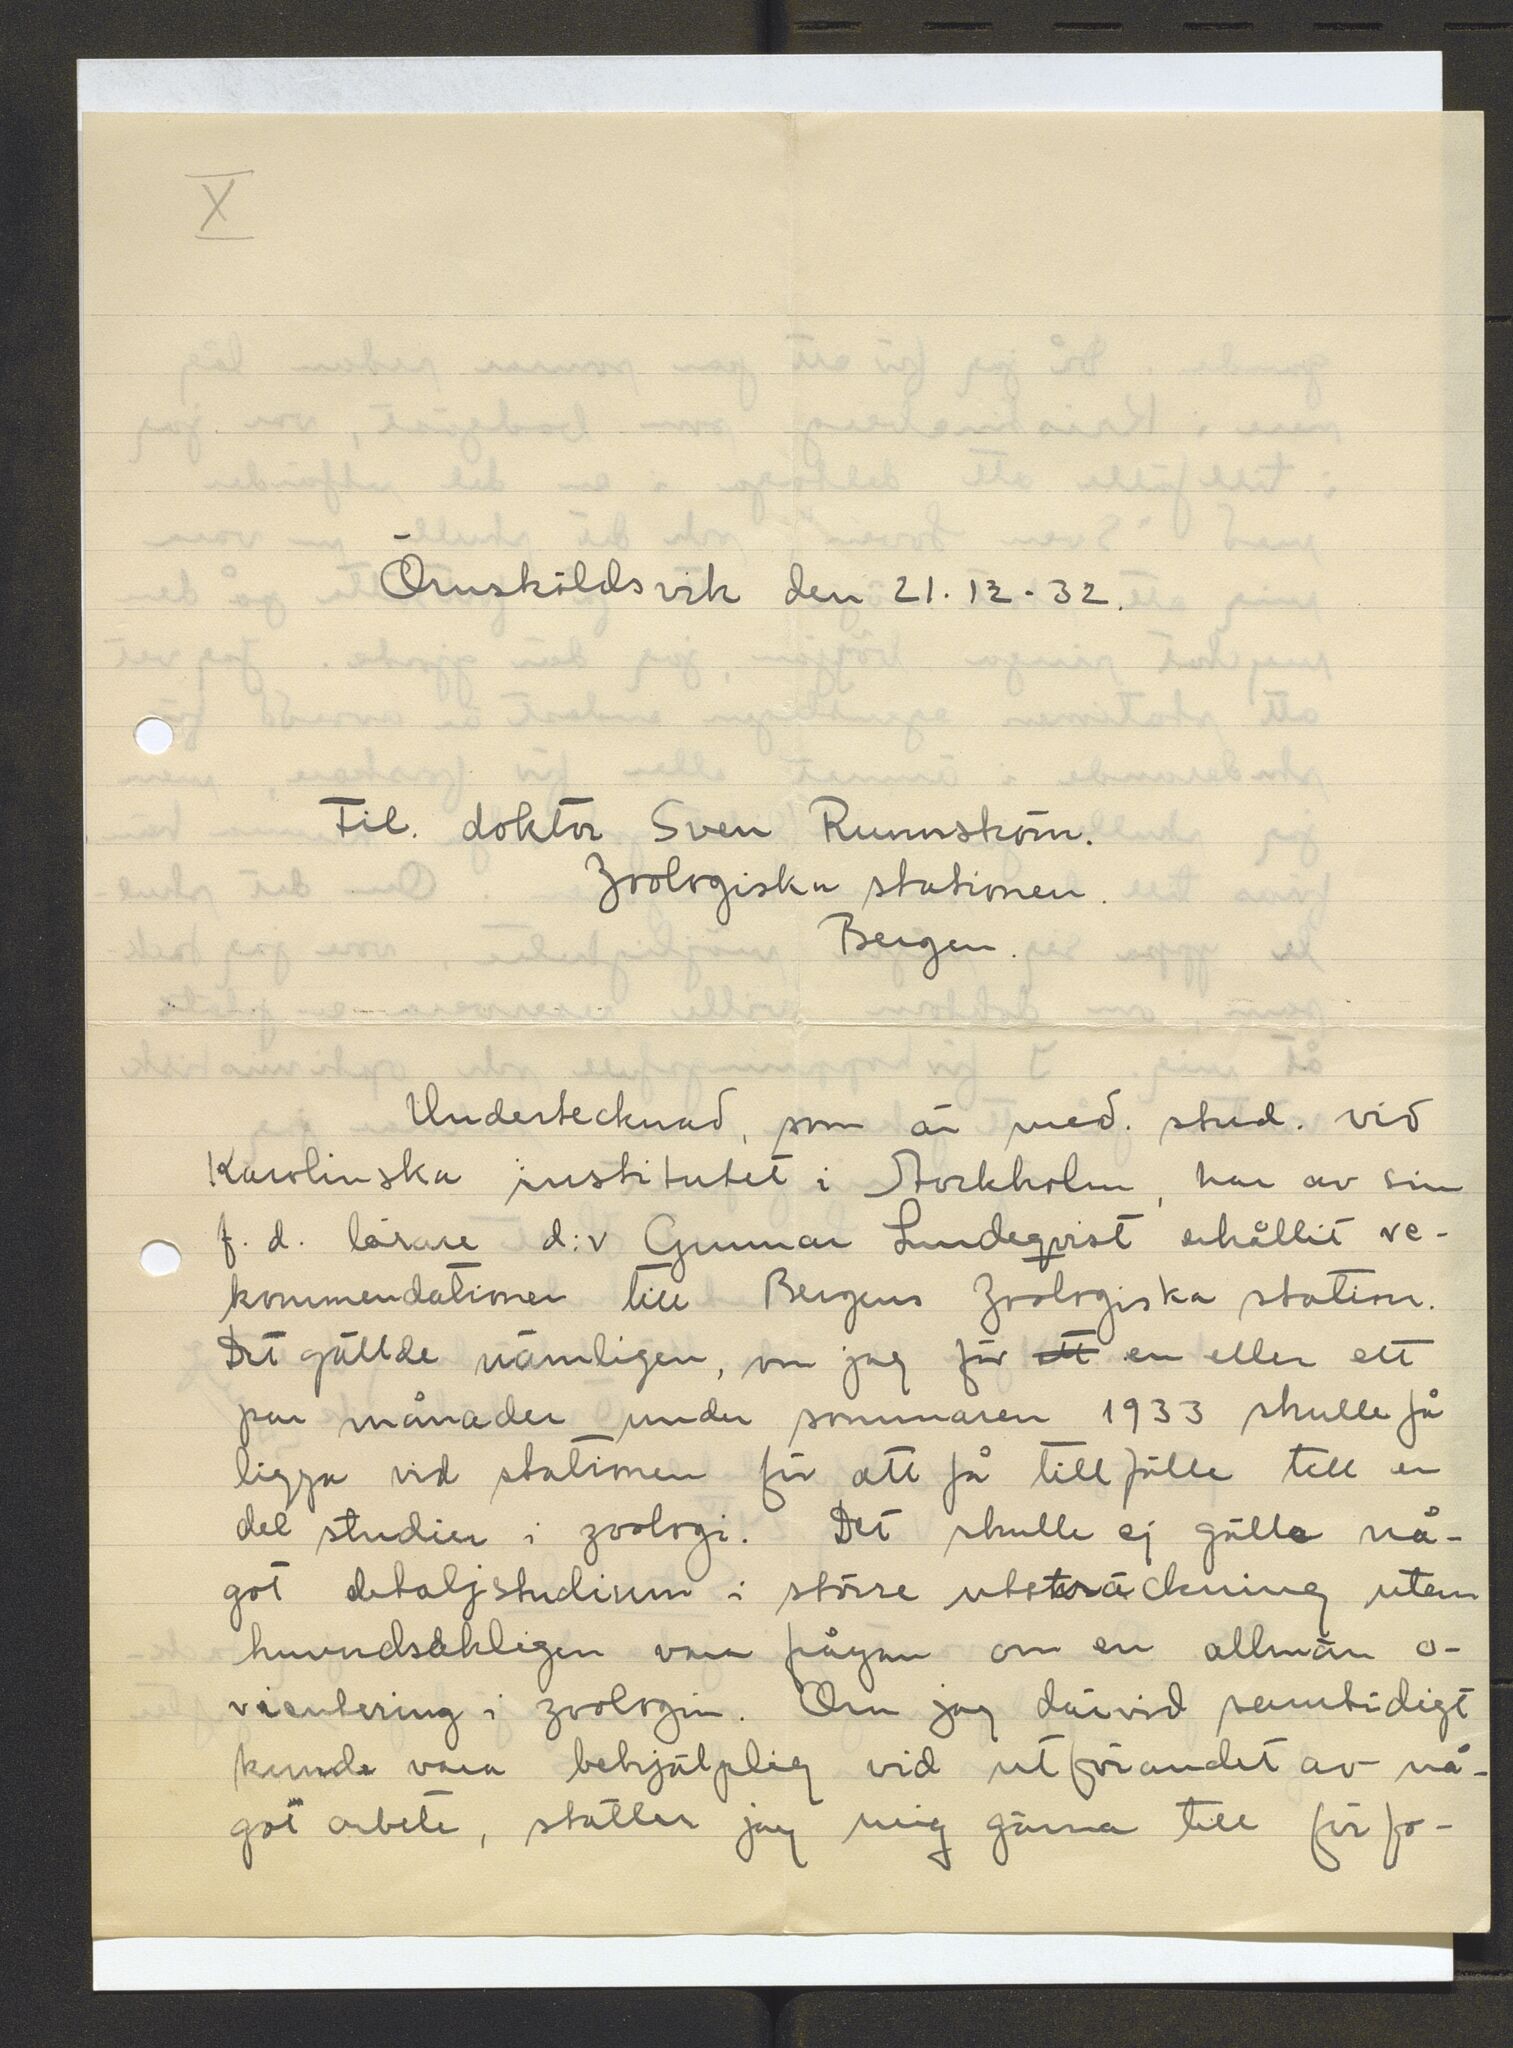 X
Örnsköldsvik den 21.12.32.
Fil. doktor Sven Runnström.
Zoologiska stationen.
Bergen.
Undertecknad, som är med. stud. vid
Karolinska institutet i Stockholm, har av sin
f. d. lärare d:r Gunnar Lundeqvist erhållit re-
kommendationer till Bergens Zoologiska station.
Det gällde nämligen, om jag för ett en eller ett
par månader under sommaren 1933 skulle få
ligga vid stationen för att få tillfälle till en
del studier i zoologi. Det skulle ej gälla nå-
got detaljstudium i större utsträckning utan
huvudsakligen vara frågan om en allmän o-
rientering i zoologin. Om jag därvid samtidigt
kunde vara behjälplig vid utförandet av nå-
got arbete, ställer jag mig gärna till förfo-